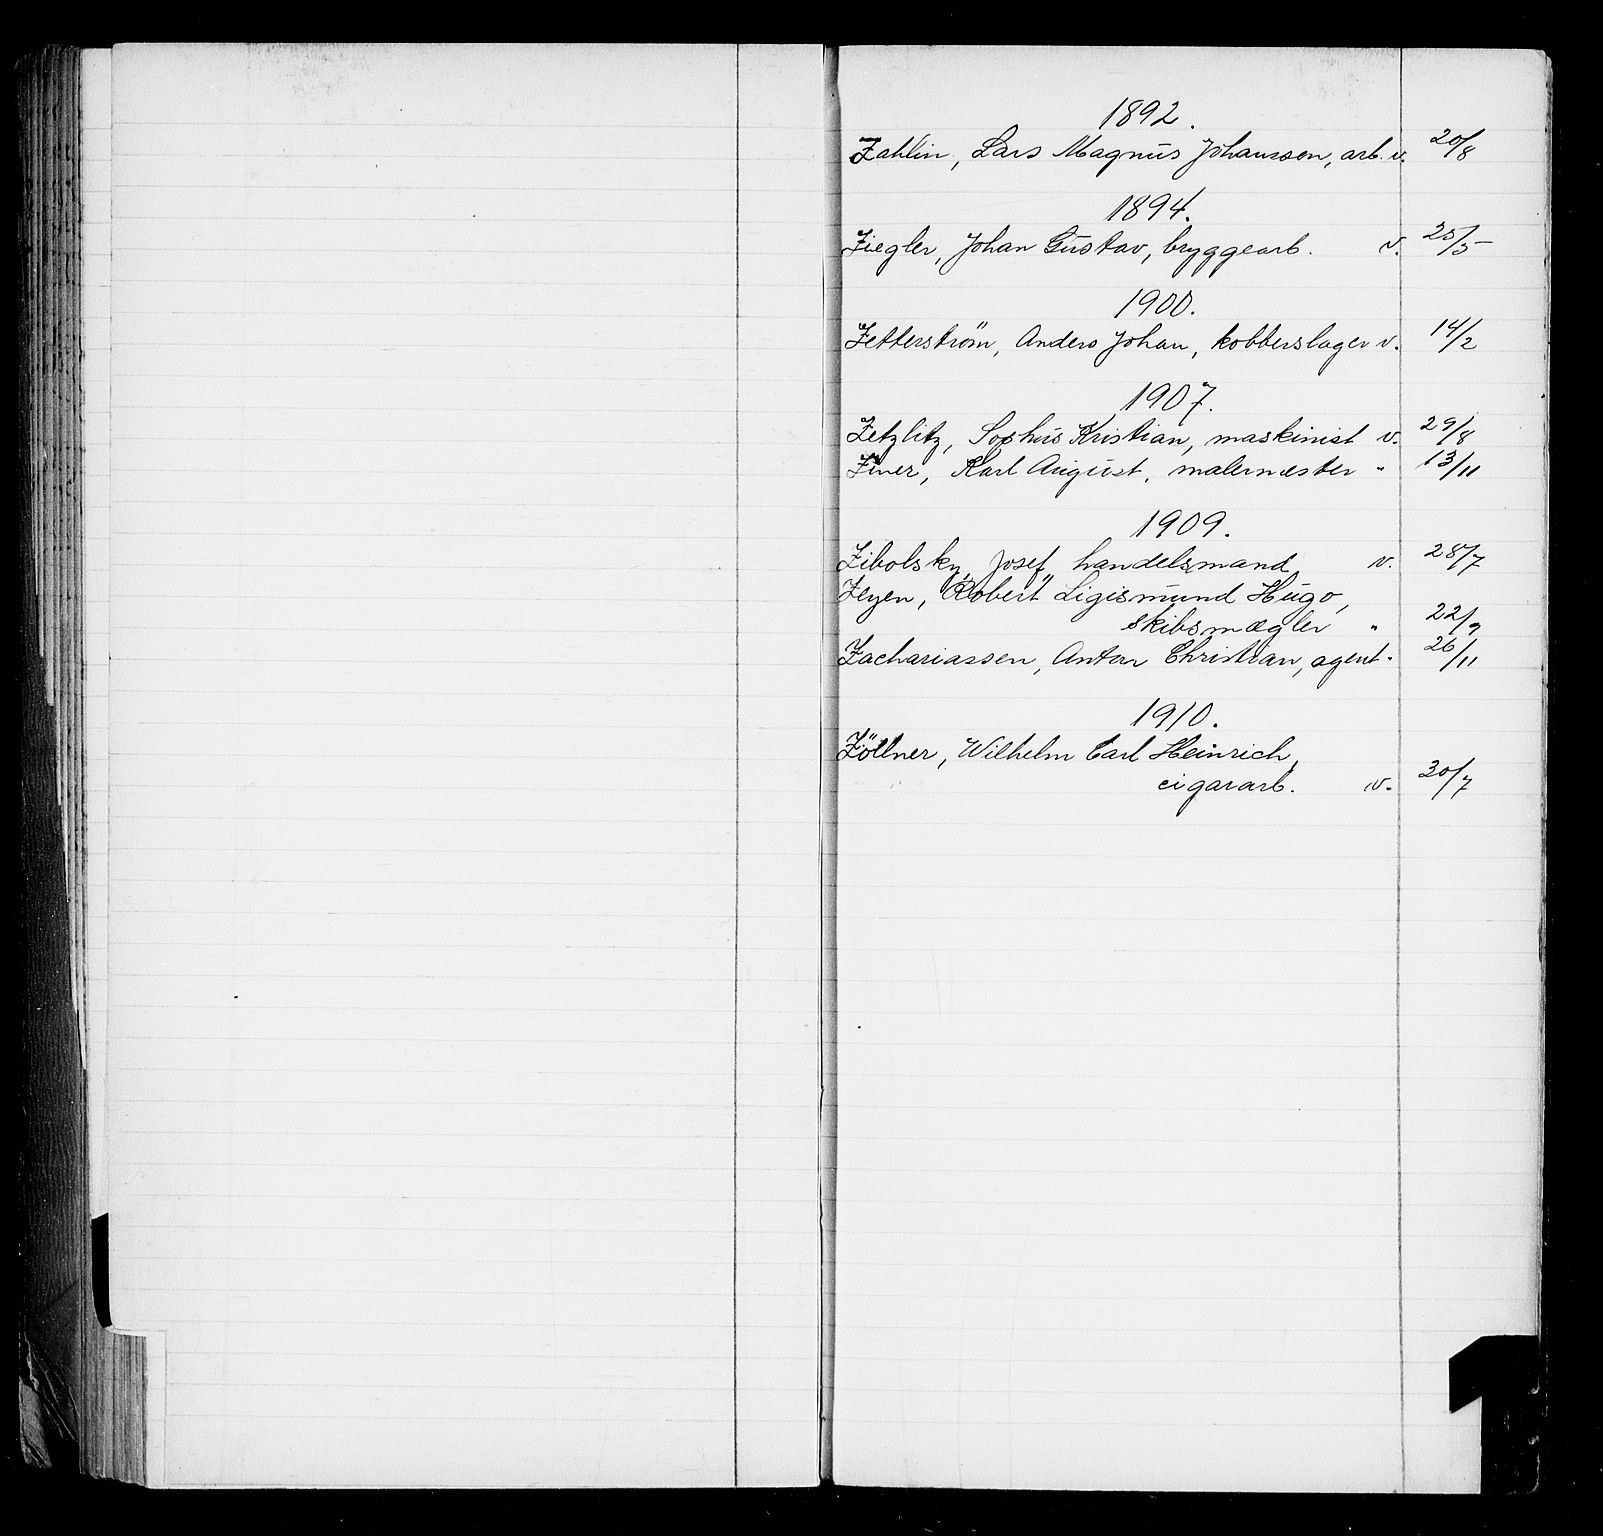 1892.
Zahlin, Lars Magnus Johansson, arb. v. 20/8
1894.
Ziegler, Johan Gustav, bryggearb. v. 25/5
1900.
Zetterström, Anders Johan, kobberslager v. 14/2
1907.
Zetzlitz, Sophus Kristian, maskinist v. 29/8
Karl August, malermester " 13/11
1909.
Zibolsky, Josef, handelsmand v. 28/7
Zeyen, Robert Sigismund Hugo,
skibsmægler " 22/9
Zachariassen, Anton Christian, agent " 26/11
1910.
Zöllner, Wilhelm Carl Heinrich,
cigararb. v. 30/7